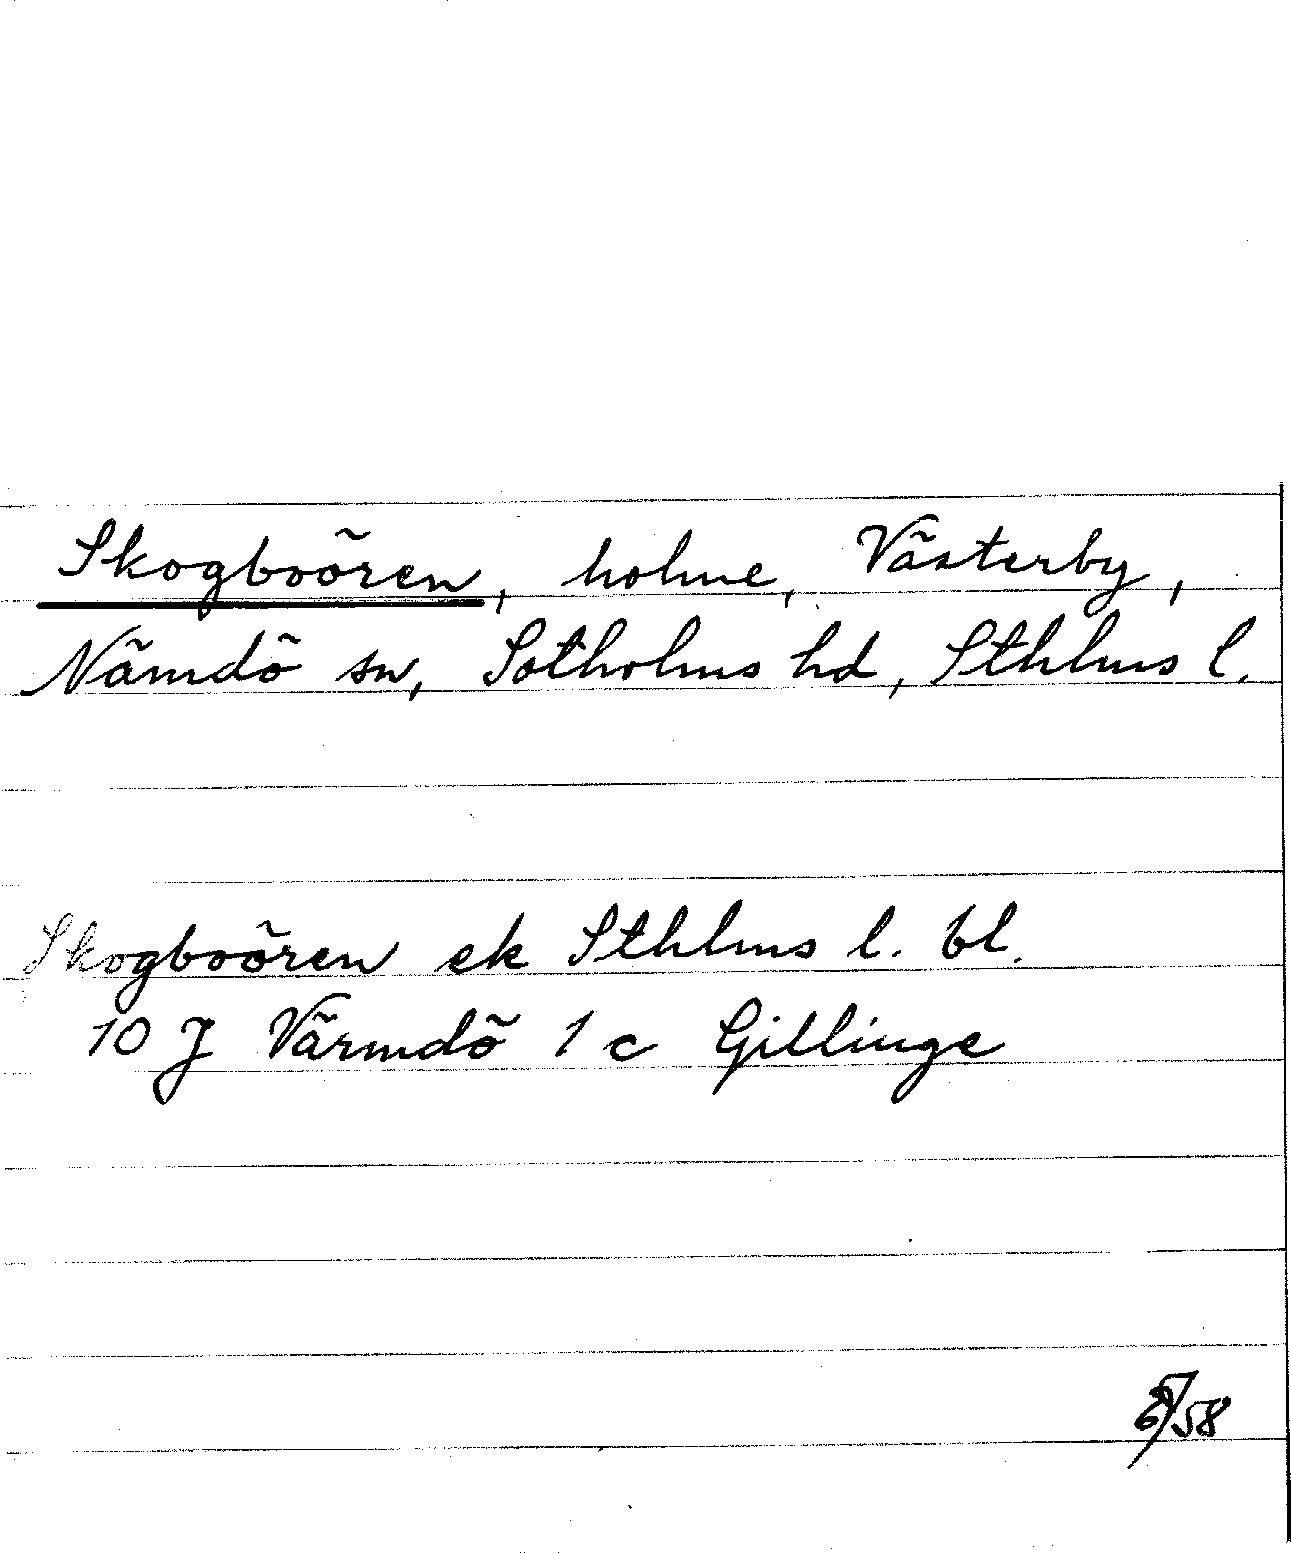 Skogboören, holme, Västerby,
Nämdö sn, Sotholms hd, Sthlms l.
Skogboören ek Sthlms l. bl.
10 J Värmdö 1 c Gillinge
58